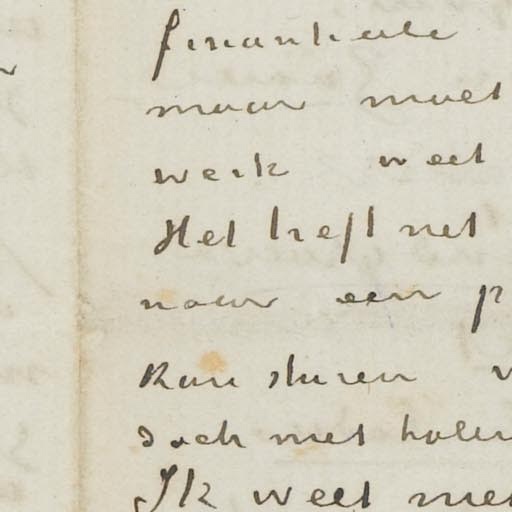 financieele
maar moet
werk weet
Het treft net
naar een p
kan sturen v
doch met halen
Ik weet niet